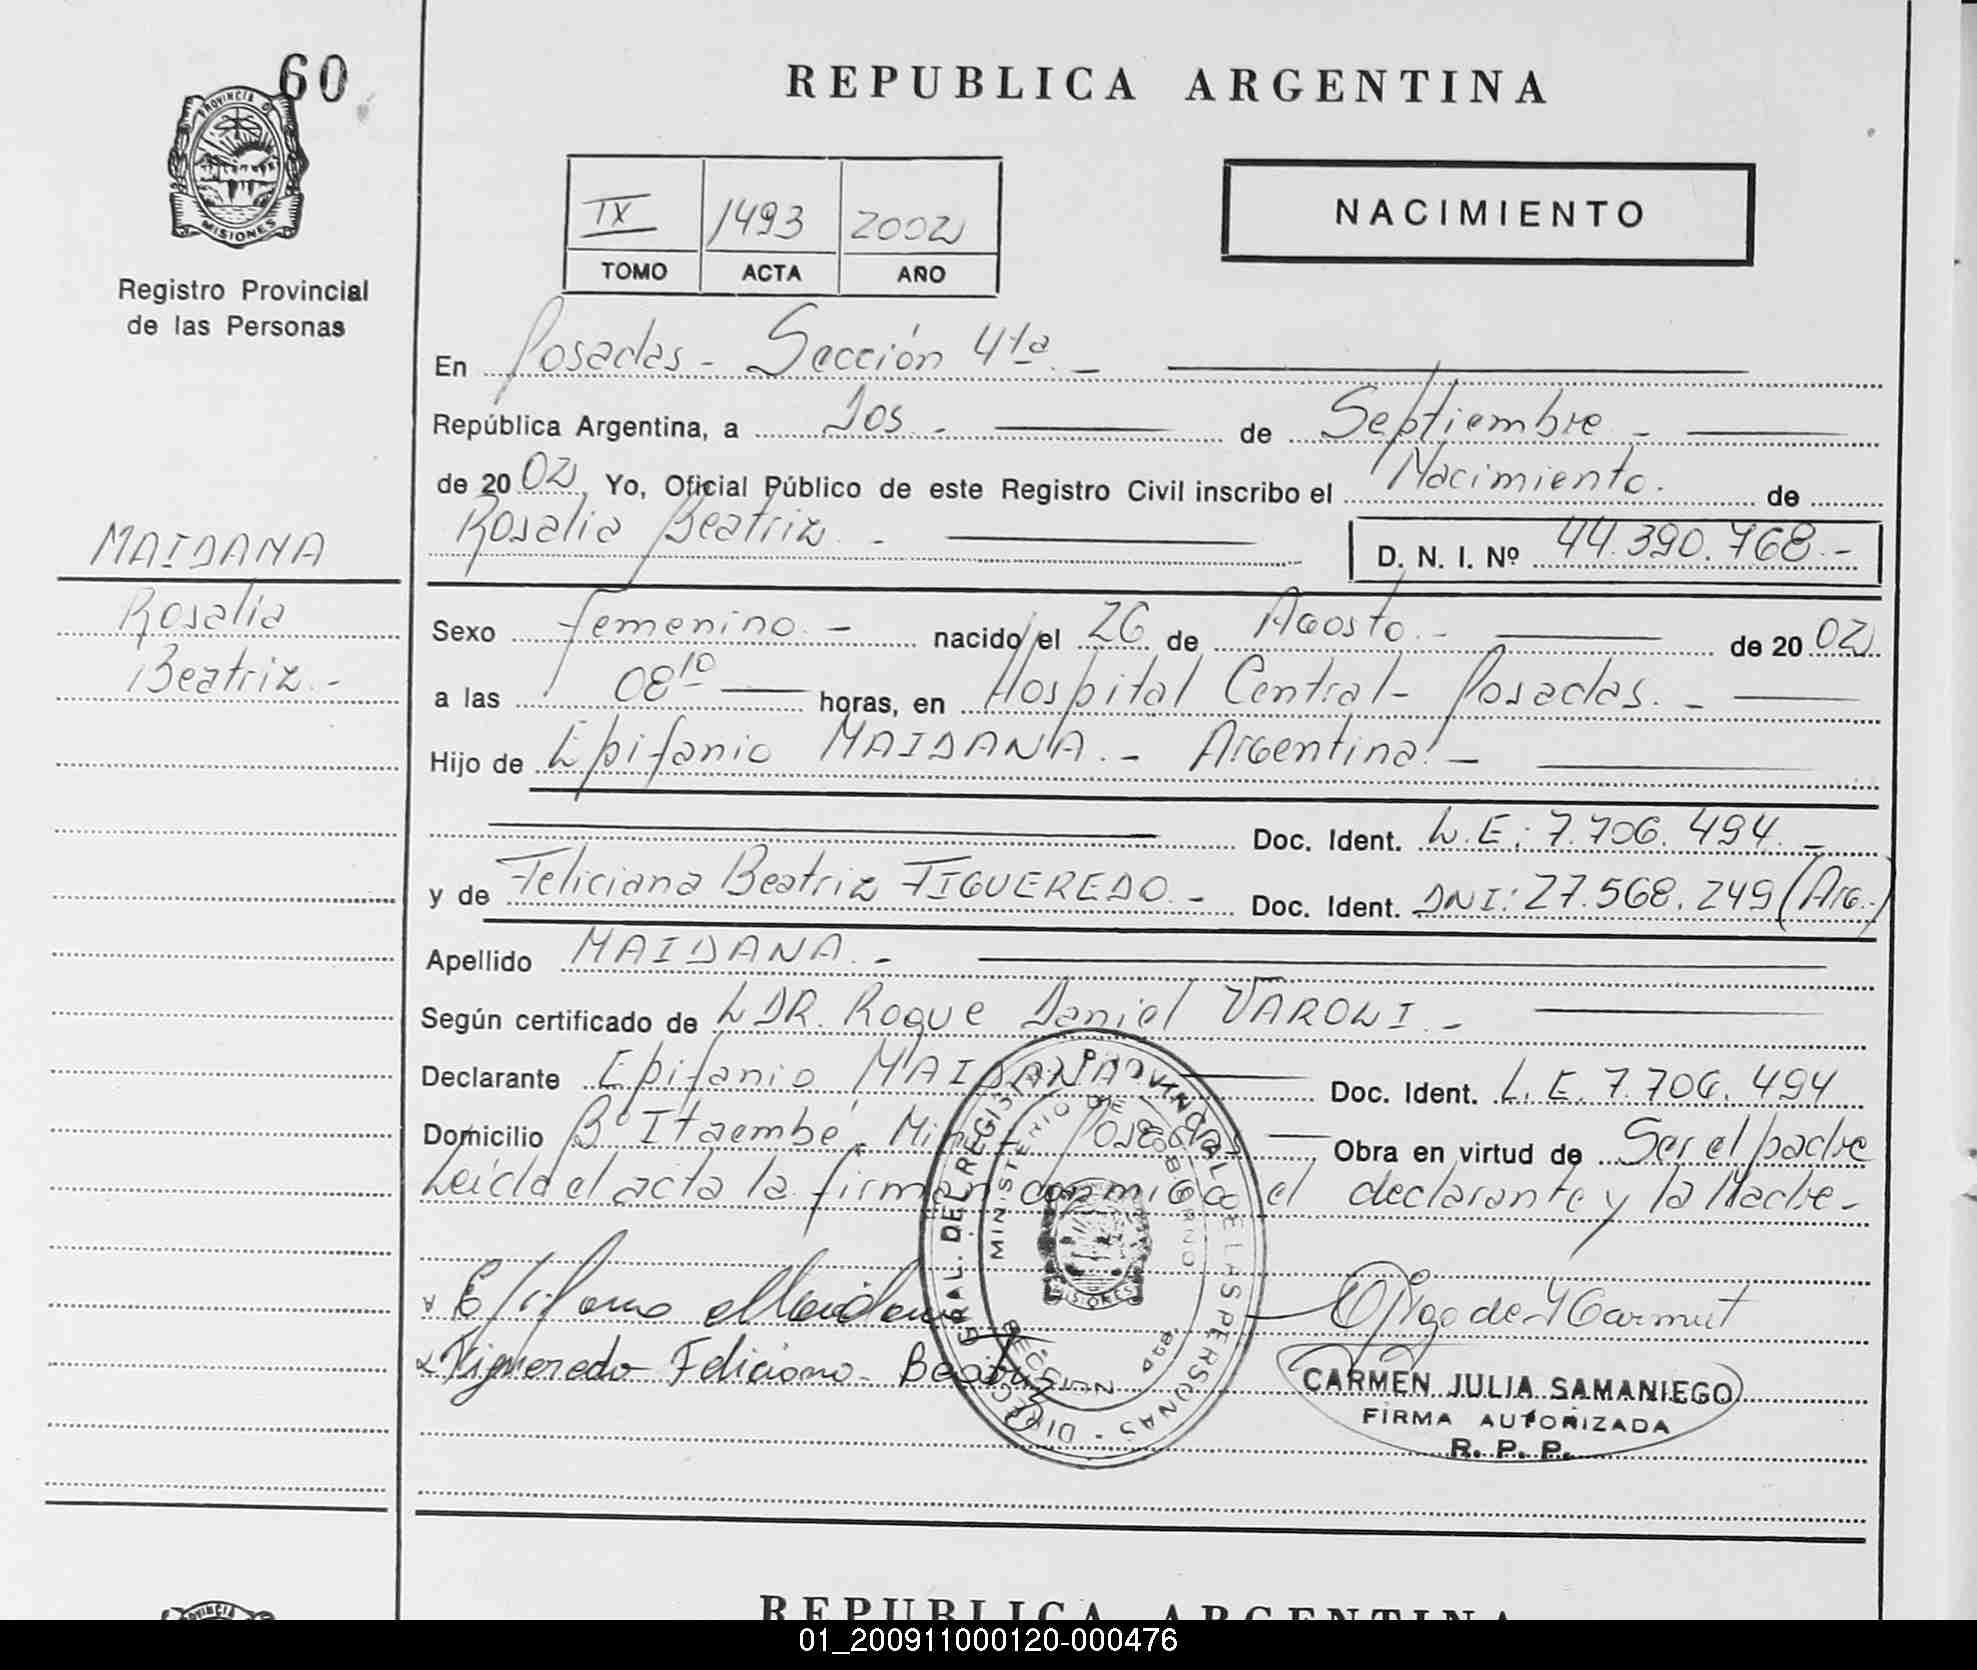 60
PROVINCIA D
MISIONES
Registro Provincial
de las Personas
MAIDANA
Rosalia
Beatriz.-
REPUBLICA ARGENTINA
IX 1493 2002
TOMO ACTA AÑO
NACIMIENTO
En Posadas - Sección 4ta.-
República Argentina, a Dos.- de Septiembre.-
de 2002, Yo, Oficial Público de este Registro Civil inscribo el Nacimiento. de
Rosalia Beatriz.- D. N. I. Nº 44.390.768.-
Sexo femenino.- nacido el 26 de Agosto.- de 2002
a las 08 10 horas, en Hospital Central - Posadas.-
Hijo de Epifanio MAIDANA.- Argentina.-
Doc. Ident. L.E: 7.706.494.-
y de Feliciana Beatriz FIGUEREDO.- Doc. Ident. DNI: 27.568.249 (Arg.-)
Apellido MAIDANA.-
Según certificado de L DR. Roque Daniel VAROLI.-
Declarante Epifanio MAIDANA Doc. Ident. L.E. 7.706.494
Domicilio Bº Itaembé Miní - Posadas Obra en virtud de Ser el padre
Leída el acta la firman conmigo el declarante y la Madre-
Epifanio Maidana
Figueredo Feliciana Beatriz
DIRECC. GRAL. DEL REGISTRO PROVINCIAL DE LAS PERSONAS
MINISTERIO DE GOBIERNO
MISIONES
CARMEN JULIA SAMANIEGO
FIRMA AUTORIZADA
R. P. P.
PROVINCIA
REPUBLICA ARGENTINA
01_200911000120-000476